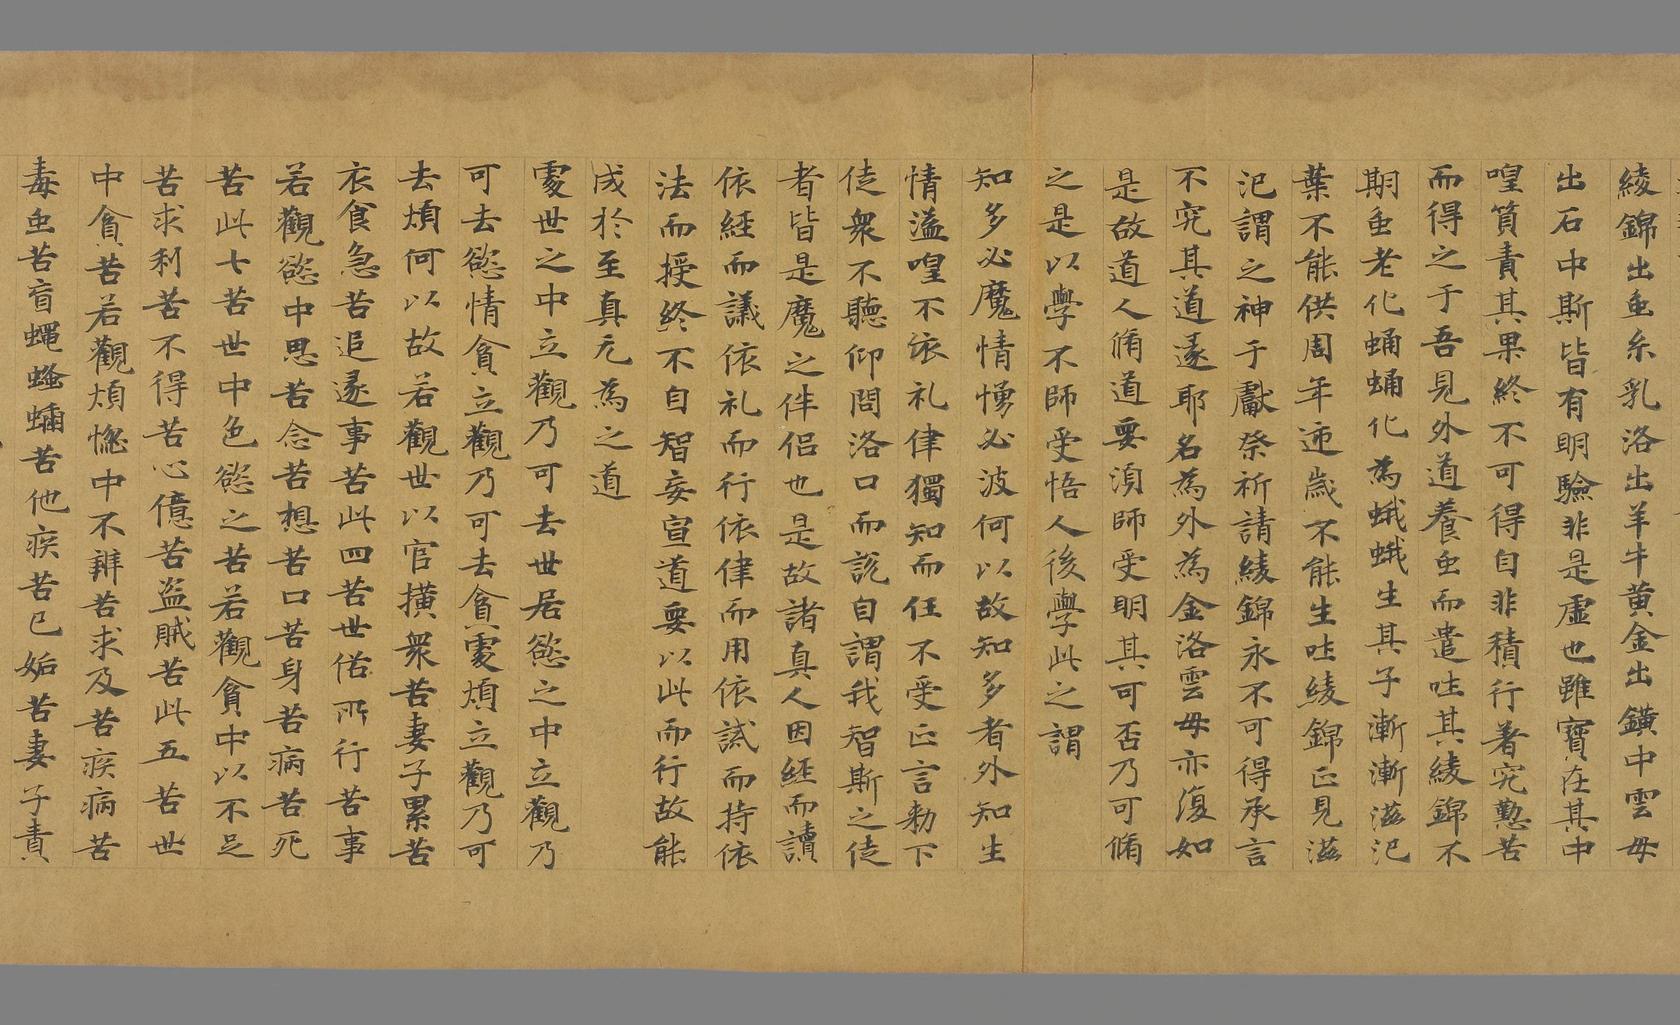 綾錦出䖝糸乳洛出羊牛黃金出鑛中雲母
出石中斯皆有明驗非是虛也雖寳在其中
喤筫責其果終不可得自非積行著究懃苦
而得之于吾見外道養䖝而遣吐其綾錦不
期䖝老化蛹蛹化為蛾蛾生其子漸漸滋汜
葉不能供周年迊歲不能生吐綾錦𠯁見滋
汜謂之神于獻祭祈請綾錦永不可得承言
不究其道遂耶名為外為金洛雲母亦復如
是故道人脩道要湏師受明其可否乃可脩
之是以學不師受悟人後學此之謂
知多必魔情慟必波何以故知多者外知生
情溢喤不依礼律獨知而任不受𠯁言勑下
徒衆不聽仰問洛口而說自謂我智斯之徒
者皆是魔之伴侣也是故諸真人因經而讀
依經而議依礼而行依律而用依試而持依
法而授終不自智妄宣道要以此而行故能
成於至真无為之道
處世之中立觀乃可去世居慾之中立觀乃
可去慾情貪立觀乃可去貪處煩立觀乃可
去煩何以故若觀世以官擴衆苦妻子累苦
衣食急苦追逐事苦此四苦世俗所行苦事
若觀慾中思苦念苦想苦口苦身苦病苦死
苦此七苦世中色慾之苦若觀貪中以不足
苦求利苦不得苦心億苦盜賊苦此五苦世
中貪苦若觀煩惚中不辦苦求及苦疾病苦
毒䖝苦盲蠅蝼蛹苦他疾苦已姤苦妻子責